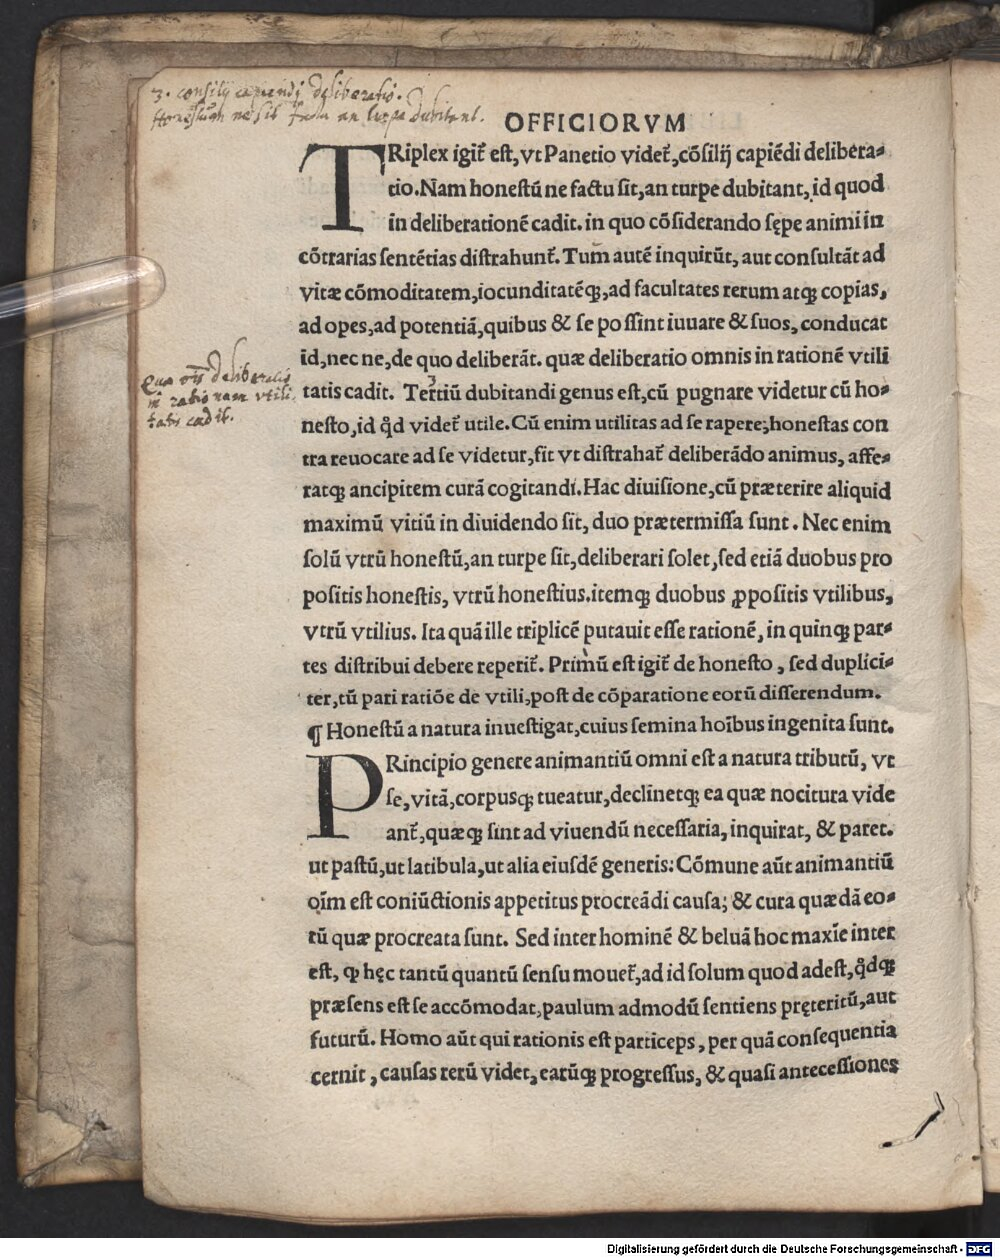 3. consilij capiendi deliberatio.
Honestum ne sit factu an turpe dubitant.
OFFICIORVM
TRiplex igit̃ est, vt Panetio videt̃, cõsilij capiẽdi delibera-
tio. Nam honestũ ne factu sit, an turpe dubitant, id quod
in deliberationẽ cadit. in quo cõsiderando sępe animi in
cõtrarias sentẽtias distrahunt̃. Tum autẽ inquirũt, aut consultãt ad
vitæ cõmoditatem, iocunditatẽq;, ad facultates rerum atq; copias,
ad opes, ad potentiã, quibus & se possint iuuare & suos, conducat
id, nec ne, de quo deliberãt. quæ deliberatio omnis in rationẽ vtili
tatis cadit. Tertiũ dubitandi genus est, cũ pugnare videtur cũ ho-
nesto, id q̊d videt̃ utile. Cũ enim utilitas ad se rapere, honestas con
tra reuocare ad se videtur, fit vt distrahat̃ deliberãdo animus, affe-
ratq; ancipitem curã cogitandi. Hac diuisione, cũ præterire aliquid
maximũ vitiũ in diuidendo sit, duo prætermissa sunt. Nec enim
solũ vtrũ honestũ, an turpe sit, deliberari solet, sed etiã duobus pro
positis honestis, vtrũ honestius. itemq; duobus ꝓpositis vtilibus,
vtrũ vtilius. Ita quã ille triplicẽ putauit esse rationẽ, in quinq; par-
tes distribui debere reperit̃. Primũ est igit̃ de honesto, sed duplici-
ter, tũ pari ratiõe de vtili, post de cõparatione eorũ disserendum.
¶ Honestũ a natura inuestigat, cuius semina hoĩbus ingenita sunt.
PRincipio genere animantiũ omni est a natura tributũ, vt
se, vitã, corpusq; tueatur, declinetq; ea quæ nocitura vide
ant̃, quæq; sint ad viuendũ necessaria, inquirat, & paret.
ut pastũ, ut latibula, ut alia eiusdẽ generis: Cõmune aũt animantiũ
oĩm est coniũctionis appetitus procreãdi causa; & cura quædã eo-
rũ quæ procreata sunt. Sed inter hominẽ & beluã hoc maxĩe inter
est, ꝙ hęc tantũ quantũ sensu mouet̃, ad id solum quod adest, q̊dq;
præsens est se accõmodat, paulum admodũ sentiens pręteritũ, aut
futurũ. Homo aũt qui rationis est particeps, per quã consequentia
cernit, causas rerũ videt, earũq; progressus, & quasi antecessiones
Quæ oĩs deliberatio
in rationem vtili
tatis cadit.
Digitalisierung gefördert durch die Deutsche Forschungsgemeinschaft - DFG